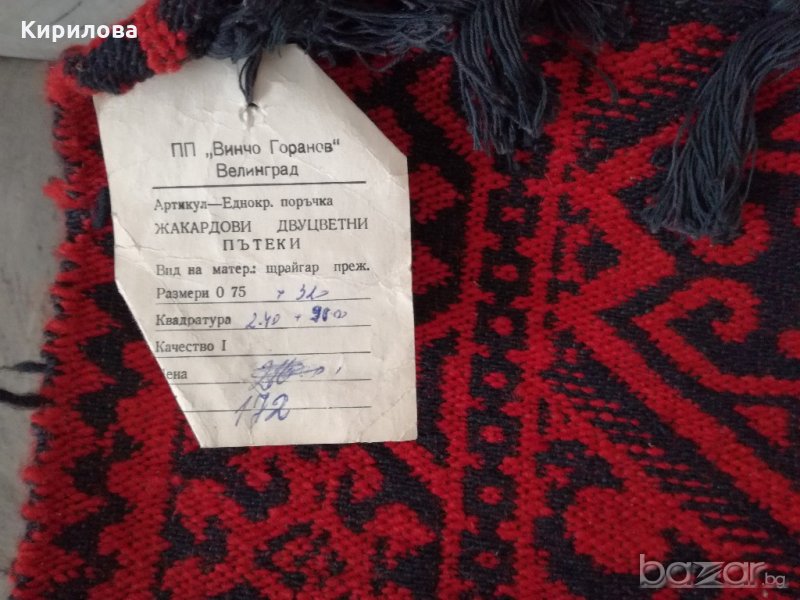 Кирилова
ПП „Винчо Горанов“
Велинград
Артикул—Еднокр. поръчка
ЖАКАРДОВИ ДВУЦВЕТНИ
ПЪТЕКИ
Вид на матер.: щрайгар преж.
Размери 0 75
Квадратура 2.40
Качество I
ена
172
bazar.bg